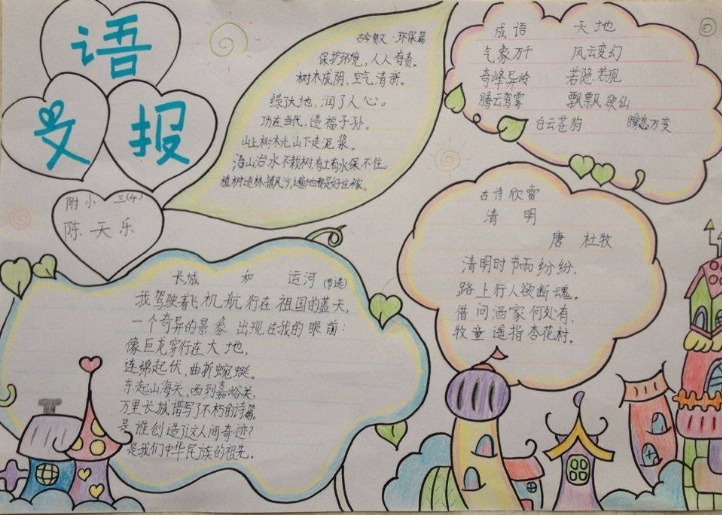 语
文 报
附小 三(4)
陈天乐
古今贤文·环保篇
保护环境，人人有责。
树木成阴，空气清新。
绿化地，润了人心。
功在当代，造福子孙。
山上树木光，山下走泥浆。
治山治水不栽树，有土有水保不住。
植树造林，
成语 天地
气象万千 风云变幻
奇峰异岭 若隐若现
腾云驾雾 飘飘欲仙
白云苍狗 瞬息万变
古诗欣赏
清明
唐 杜牧
清明时节雨纷纷，
路上行人欲断魂。
借问酒家何处有，
牧童遥指杏花村。
长城 和 运河（节选）
我驾驶着飞机航行在祖国的蓝天，
一个奇异的景象出现在我的眼前：
像巨龙穿行在大地，
连绵起伏，曲折蜿蜒。
东起山海关，西到嘉峪关，
万里长城谱写了不朽的诗篇。
是谁创造了这人间奇迹？
是我们中华民族的祖先。